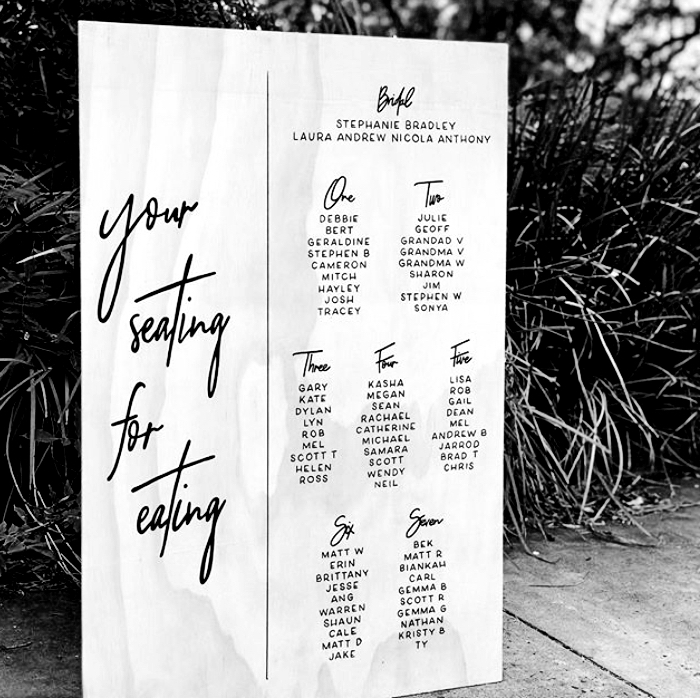 your
seating
for
eating
Bridal
STEPHANIE BRADLEY
LAURA ANDREW NICOLA ANTHONY
One
DEBBIE
BERT
GERALDINE
STEPHEN B
CAMERON
MITCH
HAYLEY
JOSH
TRACEY
Two
JULIE
GEOFF
GRANDAD V
GRANDMA V
GRANDMA W
SHARON
JIM
STEPHEN W
SONYA
Three
GARY
KATE
DYLAN
LYN
ROB
MEL
SCOTT T
HELEN
ROSS
Four
KASHA
MEGAN
SEAN
RACHAEL
CATHERINE
MICHAEL
SAMARA
SCOTT
WENDY
NEIL
Five
LISA
ROB
GAIL
DEAN
MEL
ANDREW B
JARROD
BRAD T
CHRIS
Six
MATT W
ERIN
BRITTANY
JESSE
ANG
WARREN
SHAUN
CALE
MATT D
JAKE
Seven
BEK
MATT R
BIANKAH
CARL
GEMMA B
SCOTT R
GEMMA G
NATHAN
KRISTY B
TY